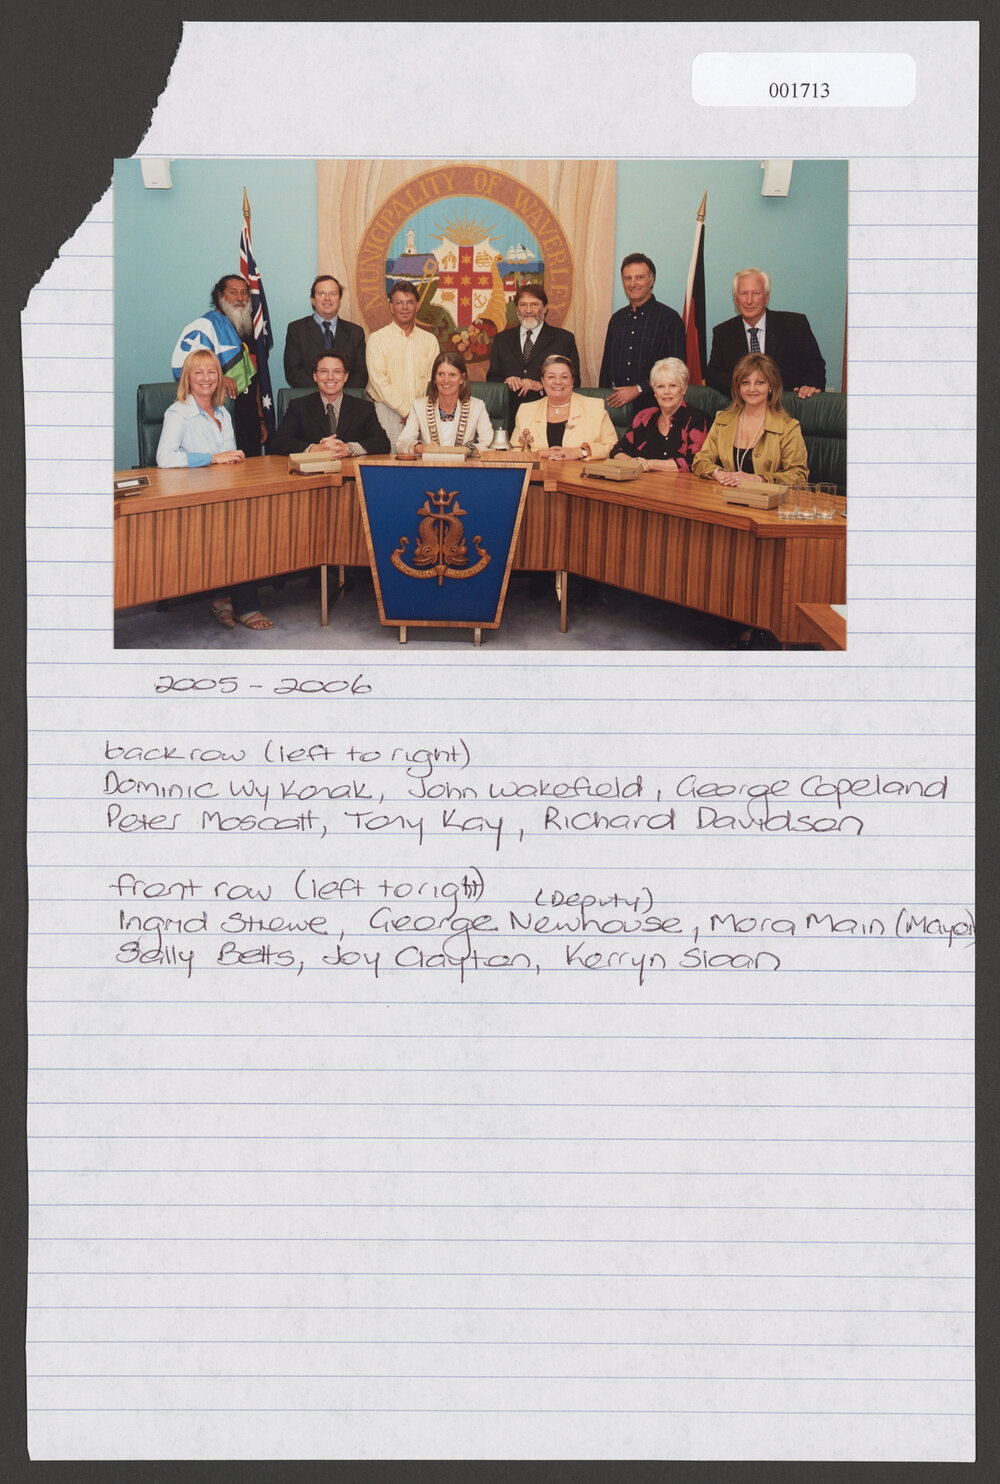 001713
MUNICIPALITY OF WAVERLEY
2005 - 2006
back row (left to right)
Dominic Wy Kanak, John Wakefield, George Copeland
Peter Moscatt, Tony Kay, Richard Davidson
front row (left to right)
(Deputy)
Ingrid Strewe, George Newhouse, Mora Main (Mayor)
Sally Betts, Joy Clayton, Kerryn Sloan